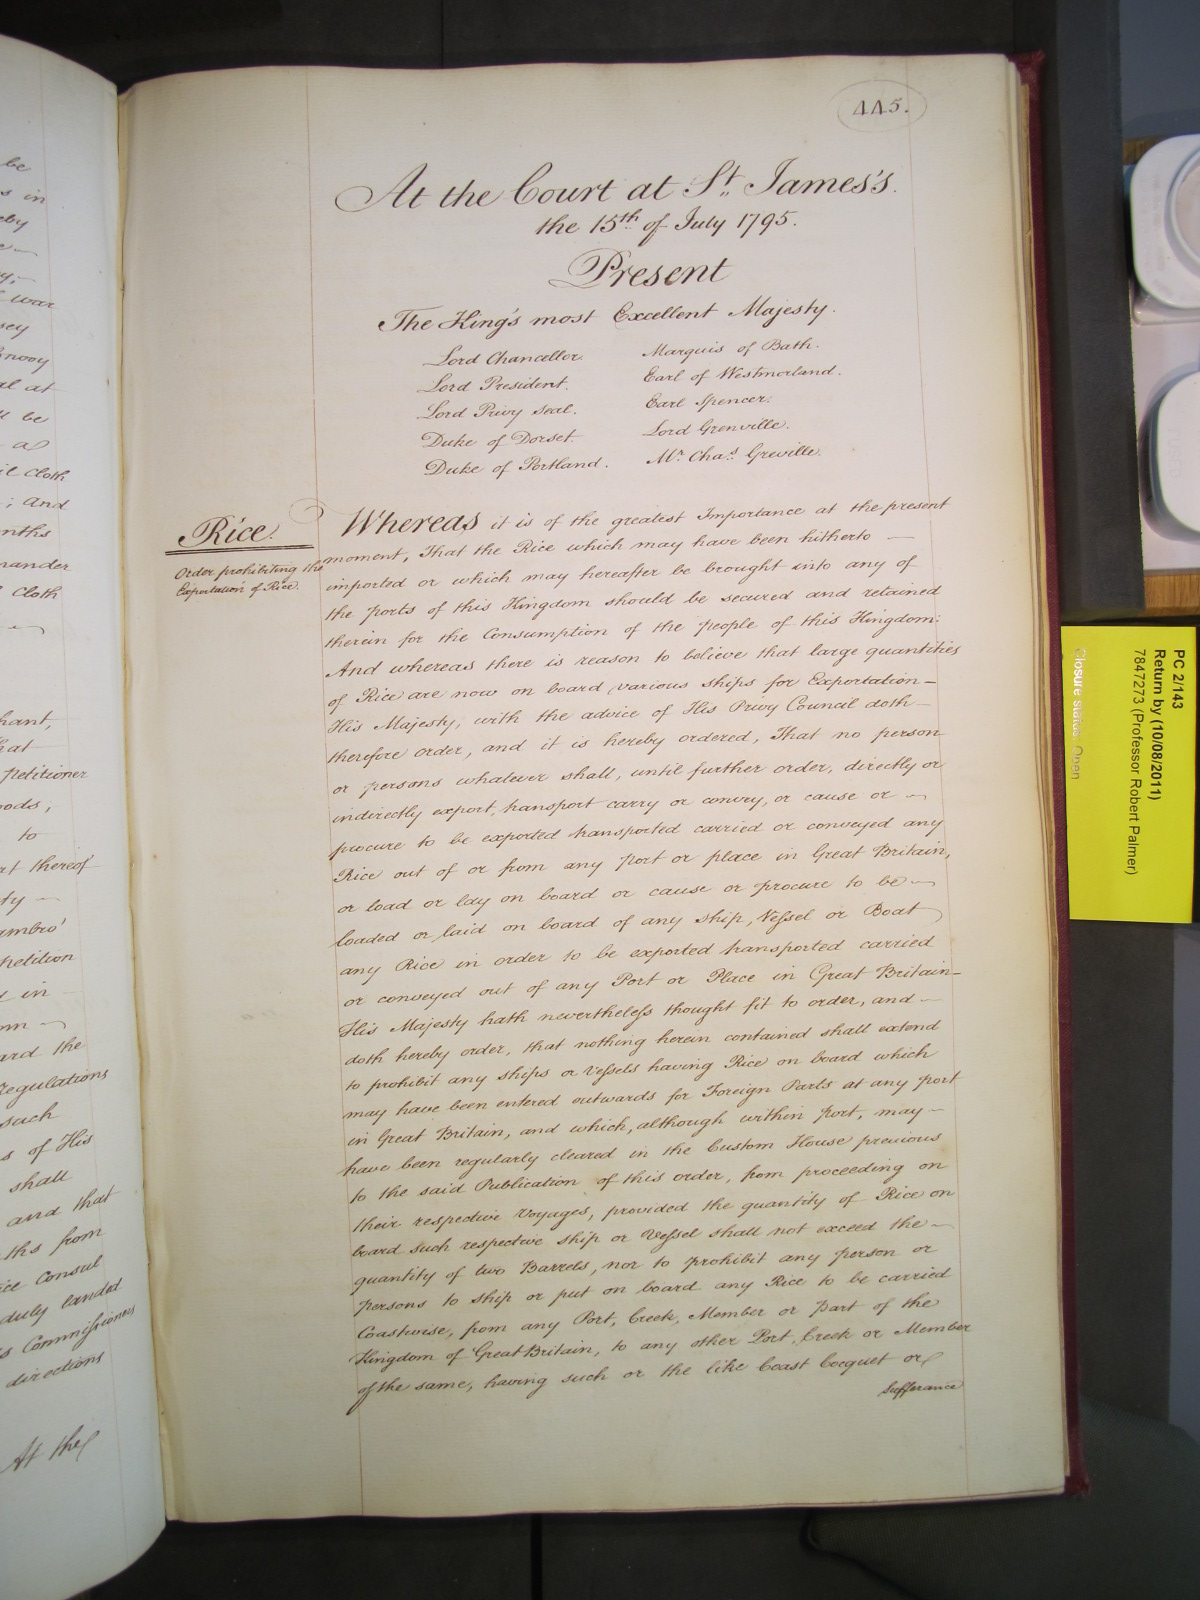 be
s in
eby
war
sey
nooy
al at
ll be
a
il cloth
; and
nths
mander
cloth
hant,
hat
petitioner
oods,
to
rt thereof
ty
ambro'
Petition
y in
ard the
Regulations
such
s of His
shall
and that
ths from
ice Consul
duly landed
s Commissioners
directions
At the
445.
At the Court at St. James's.
the 15th of July 1795.
Present
The King's most Excellent Majesty.
Lord Chancellor. Marquis of Bath.
Lord President. Earl of Westmorland.
Lord Privy Seal. Earl Spencer.
Duke of Dorset. Lord Grenville.
Duke of Portland. Mr. Chas. Greville.
Rice.
Order prohibiting the
Exportation of Rice.
Whereas it is of the greatest Importance at the present
moment, That the Rice which may have been hitherto —
imported or which may hereafter be brought into any of
the ports of this Kingdom should be secured and retained
therein for the Consumption of the people of this Kingdom:
And whereas there is reason to believe that large quantities
of Rice are now on board various ships for Exportation —
His Majesty, with the advice of His Privy Council doth —
therefore order, and it is hereby ordered, That no person
or persons whatever shall, until further order, directly or
indirectly export, transport carry or convey, or cause or —
procure to be exported transported carried or conveyed any
Rice out of or from any port or place in Great Britain,
or load or lay on board or cause or procure to be —
loaded or laid on board of any ship, Vessel or Boat
any Rice in order to be exported transported carried
or conveyed out of any Port or Place in Great Britain —
His Majesty hath nevertheless thought fit to order, and —
doth hereby order, that nothing herein contained shall extend
to prohibit any ships or Vessels having Rice on board which
may have been entered outwards for Foreign Parts at any port
in Great Britain, and which, although within port, may —
have been regularly cleared in the Custom House previous
to the said Publication of this order, from proceeding on
their respective Voyages, provided the quantity of Rice on
board such respective ship or Vessel shall not exceed the —
quantity of two Barrels, nor to prohibit any person or
persons to ship or put on board any Rice to be carried
Coastwise, from any Port, Creek, Member or Part of the
Kingdom of Great Britain, to any other Port, Creek or Member
of the same, having such or the like Coast Cocquet or
Sufferance
PC 2/143
Return by (10/08/2011)
7847273 (Professor Robert Palmer)
Closure status: Open